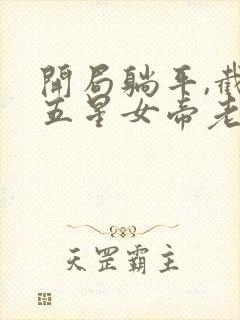 開局躺平,截
五星女帝老
天罡霸主